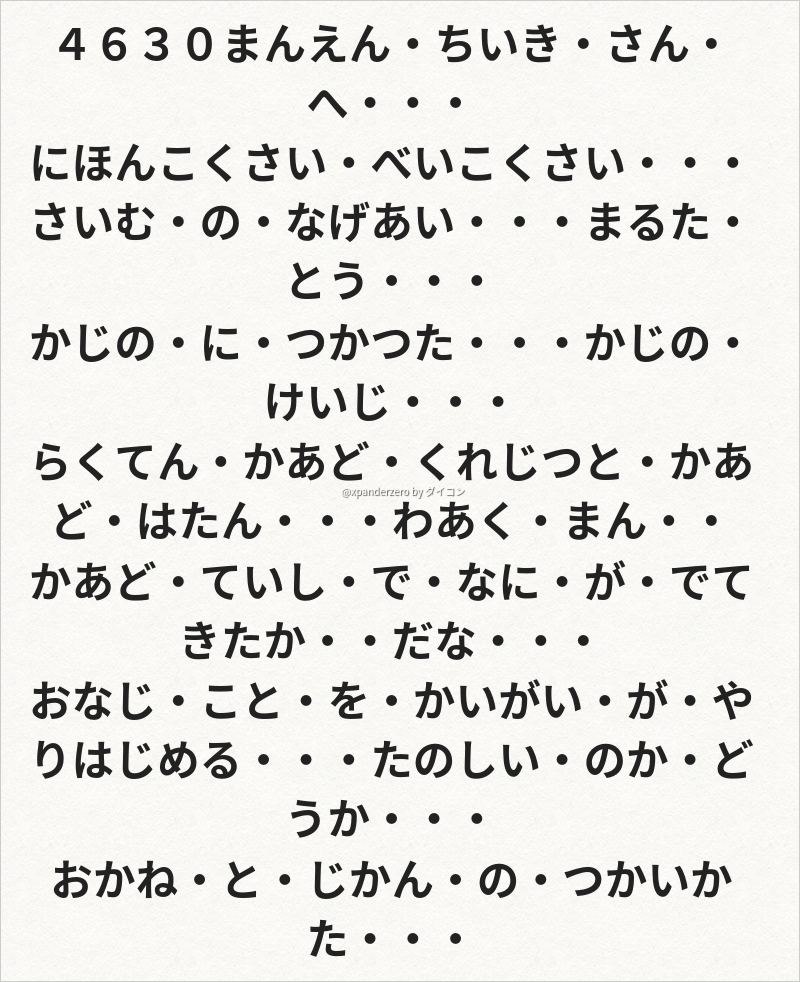 ４６３０まんえん・ちいき・さん・
へ・・・
にほんこくさい・べいこくさい・・・
さいむ・の・なげあい・・・まるた・
とう・・・
かじの・に・つかつた・・・かじの・
けいじ・・・
らくてん・かあど・くれじつと・かあ
@xpanderzero by ダイコン
ど・はたん・・・わあく・まん・・
かあど・ていし・で・なに・が・でて
きたか・・だな・・・
おなじ・こと・を・かいがい・が・や
りはじめる・・・たのしい・のか・ど
うか・・・
おかね・と・じかん・の・つかいか
た・・・